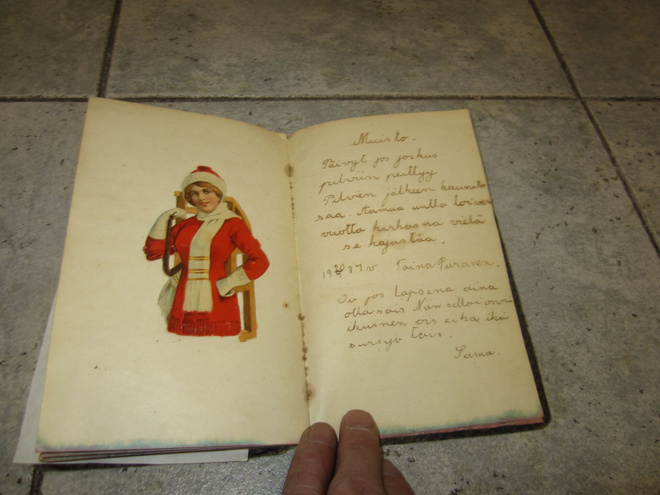 Muisto.
Päivyt jos joskus
pilviin peittyy
Pilvien jälkeen kaunito
saa. Aamua uutta toivoen
vuotta karhasna vielä
se kajastaa.
19 37 v Taina Puranen.
Oi jos lapsena aina
olla sais Niin silloin onni
ikuinen ois eikä ikä
surujo tois.
Sama.